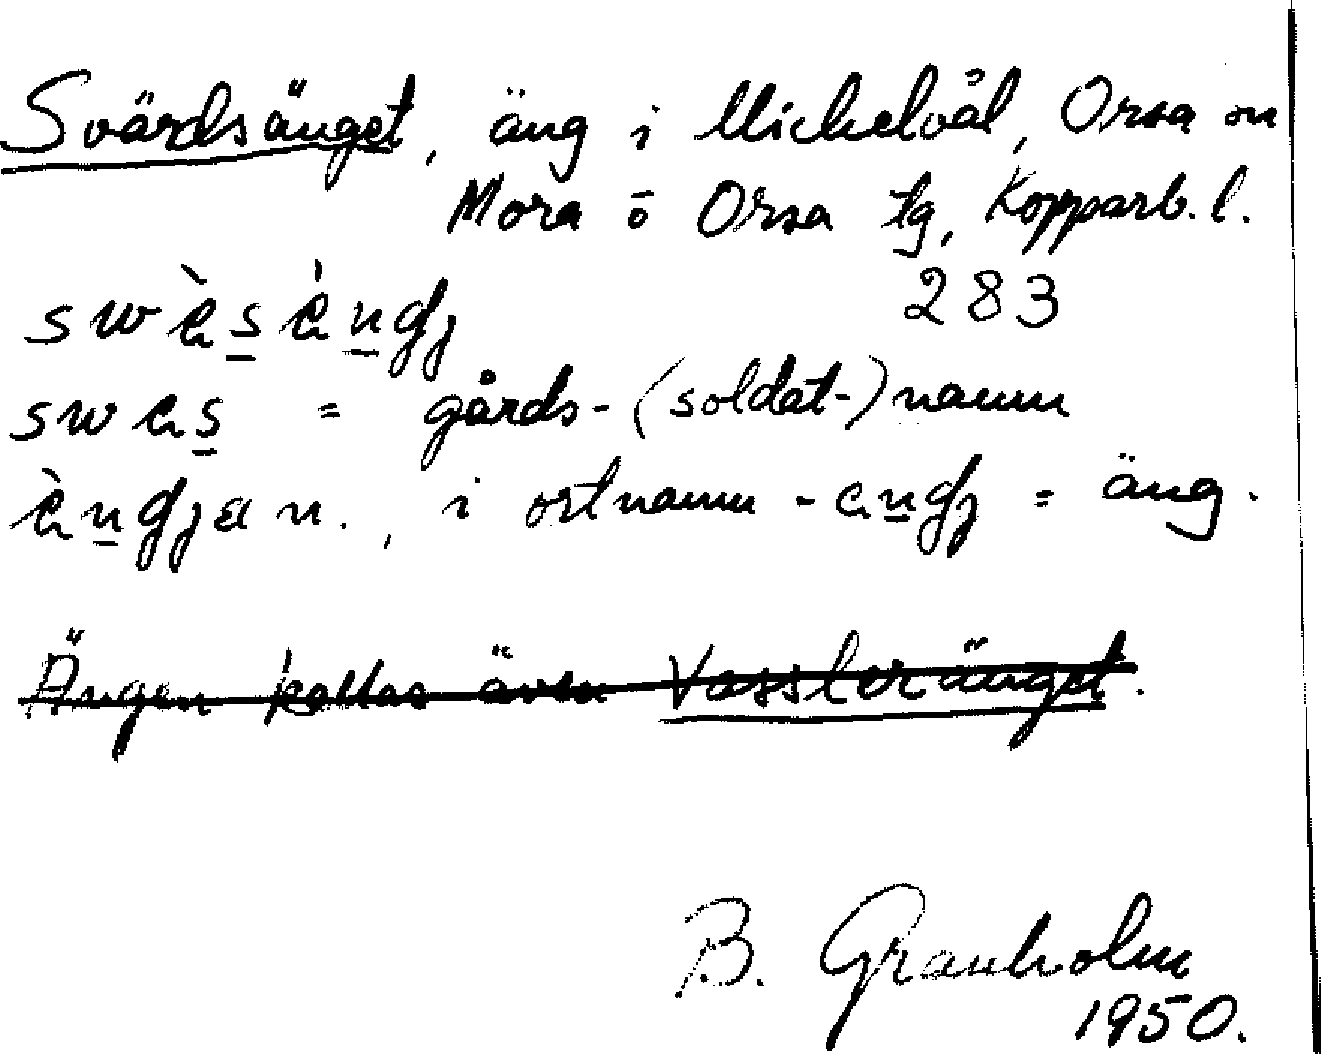 Svärdsänget, äng i Mickelvål, Orsa sn
Mora o Orsa tg, Kopparb. l.
283
= gårds-(soldat-)namn
n., i ortnamn = äng.
Ängen kallas även Vassleränget.
B. Granholm
1950.